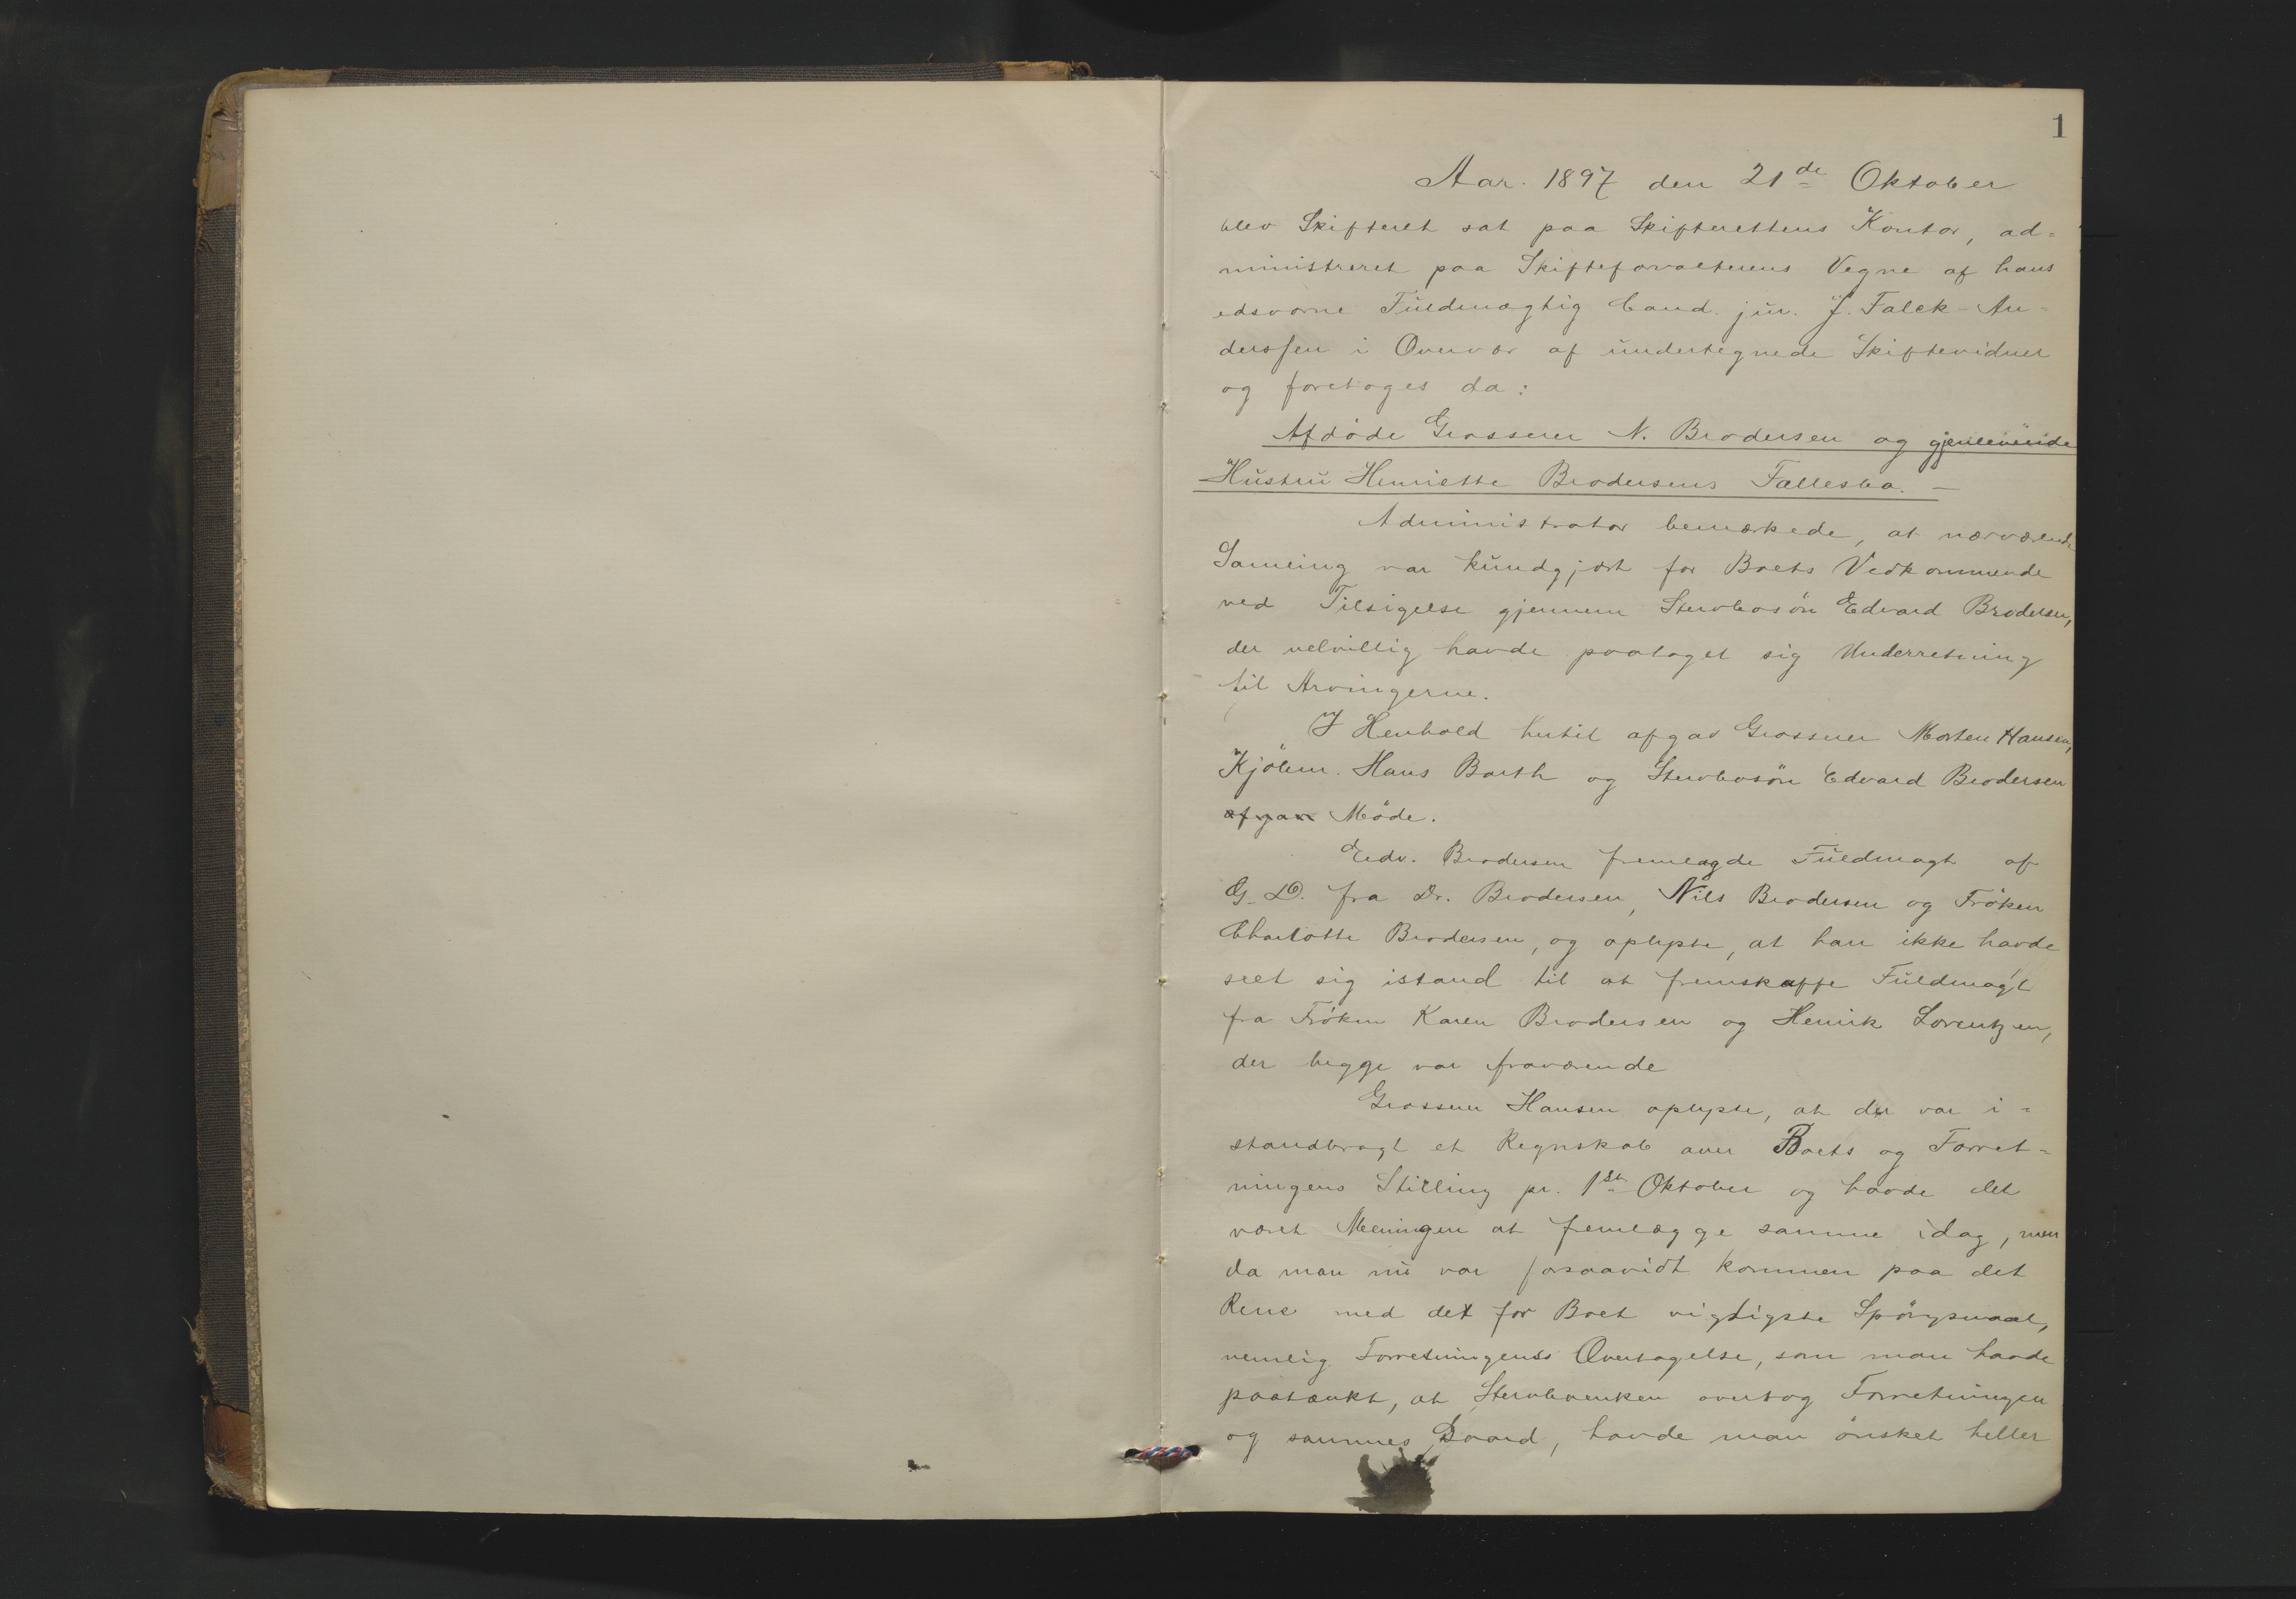 1
Aar 1897 den 21de Oktober
blev Skifteret sat paa Skifterettens Kontor, ad=
ministreret paa Skifteforvalterens Vegne af hans
edsvorne Fuldmægtig Cand. jur. J. Falck-An=
derssen i Overvær af undertegnede Skiftevidner
og foretoges da:
Afdøde Grosserer N. Brodersen og gjenlevende
Hustru Henriette Brodersens Fællesbo. —
Administrator bemærkede, at nærværende
Samling var kundgjort for Boets Vedkommende
ved Tilsigelse gjennem Stervbosön Edvard Brodersen,
der velvillig havde paataget sig Underretning
til Arvingerne.
I Henhold hertil afgav Grosserer Morten Hansen,
Kjöbm. Hans Barth og Stervbosön Edvard Brodersen
afgav Möde.
Edv. Brodersen fremlagde Fuldmagt af
G. D. fra Dr. Brodersen, Nils Brodersen og Fröken
Charlotte Brodersen, og oplyste, at han ikke havde
seet sig istand til at fremskaffe Fuldmagt
fra Fröken Karen Brodersen og Henrik Lorentzen,
der begge var fraværende
Grosserer Hansen oplyste, at der var i=
standbragt et Regnskab over Boets og Forret=
ningens Stilling pr. 1ste Oktober og havde det
været Meningen at fremlægge samme idag, men
da man nu var forsaavidt kommen paa det
Rene med det for Boet vigtigste Spörgsmaal,
nemlig Forretningens Overtagelse, som man havde
paatænkt, at Stervboenken overtog Forretningen
og sammes Gaard, havde man önsket heller